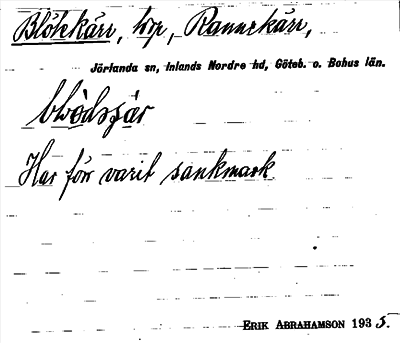 Blötekärr, torp, Rannekärr,
Jörlanda sn, Inlands Nordre hd, Göteb. o. Bohus län.
Har förr varit sankmark
ERIK ABRAHAMSON 1935.